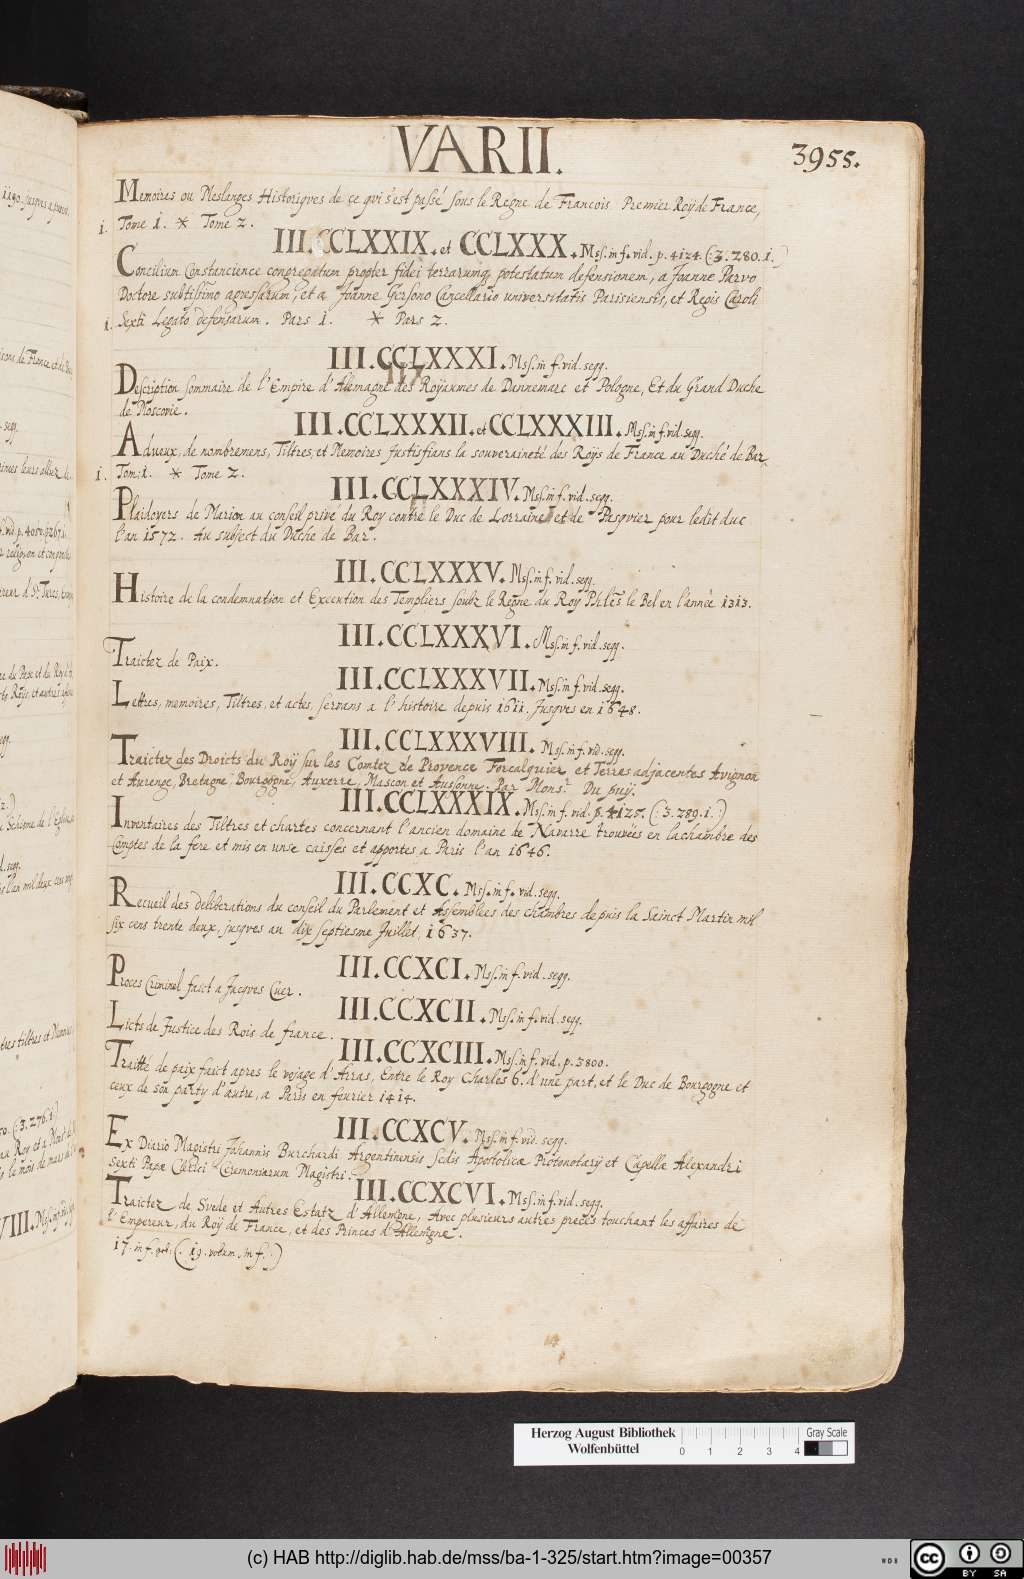 VARII.
3955.
Memoires ou Meslanges Historiques de çe qui s'est passé sous le Regne de Francois Premier Roy de France,
i. Tome 1. * Tome 2.
III.CCLXXIX. et CCLXXX. Mss. in f. vid. p. 4124. (:3.280.1.)
Concilium Constancience congregatum propter fidei terrarumq potestatum defensionem, a Joanne Parvo
Doctore subtilissimo agressarum, et a Joanne Gersono Cancellario universitatis Parisiensis, et Regis Caroli
i. Sexti Legato defensarum. Pars 1. * Pars 2.
III.CCLXXXI. Mss. in f. vid. segg.
Description sommaire de l'Empire d'Alemagne des Royaumes de Dannemarc et Pologne, Et du Grand Duche
de Moscovie.
III.CCLXXXII. et CCLXXXIII. Mss. in f. vid. segg.
Adveux, de nombremens, Tiltres, et Memoires Justifians la souveraineté des Roys de France au Duché de Bar.
i. Tom: 1. * Tome 2.
III.CCLXXXIV. Mss. in f. vid. segg.
Plaidoyers de Marion au conseil privé du Roy contre le Duc de Lorraine et de Pasqvier pour ledit duc
l'an 1572. Au subject du Duché de Bar.
III.CCLXXXV. Mss. in f. vid. segg.
Histoire de la condemnation et Execution des Templiers soubz le Regne du Roy Phles le Bel en l'année 1313.
III.CCLXXXVI. Mss. in f. vid. segg.
Traictez de Paix.
III.CCLXXXVII. Mss. in f. vid. segg.
Lettres, memoires, Tiltres, et actes, servans a l'histoire depuis 1611. Jusqves en 1648.
III.CCLXXXVIII. Mss. in f. vid. segg.
Traictez des Droicts du Roy sur les Comtez de Provence Forcalquier et Terres adjacentes Avignon
et Aurenge, Bretagne Bourgogne, Auxerre, Mascon et Aussonne. Par Mons.r Du puy.
III.CCLXXXIX. Mss. in f. vid. p. 4125. (:3.289.1.)
Inventaires des Tiltres et chartes concernant l'ancien domaine de Navarre trouvées en la chambre des
Comptes de la fere et mis en unse caisses et apportes a Paris l'an 1646.
III.CCXC. Mss. in f. vid. segg.
Recueil des deliberations du conseil du Parlement et Assemblées des chambres depuis la Sainct Martin mil
six cens trente deux, jusqves au dix septiesme Juillet, 1637.
III.CCXCI. Mss. in f. vid. segg.
Proces Criminel faict a Jacqves Cuer.
III.CCXCII. Mss. in f. vid. segg.
Licts de Justice des Rois de france.
III.CCXCIII. Mss. in f. vid. p. 3800.
Traitté de paix faict apres le voyage d'Arras, Entre le Roy Charles 6. d'une part, et le Duc de Bourgogne et
ceux de son party d'autre, a Paris en fevrier 1414.
III.CCXCV. Mss. in f. vid. segg.
Ex Diario Magistri Johannis Burchardi Argentinensis sedis Apostolicæ Protonotarij et Capellæ Alexandri
Sexti Papæ Clerici Cremoniarum Magistri.
III.CCXCVI. Mss. in f. vid. segg.
Traictez de Svede et Autres Estatz d'Allemgne, Avec plusieurs autres pieces touchant les affaires de
l'Empereur, du Roy de France, et des Princes d'Allemgne.
17. in f. (. 19. volum. in f. :)
Herzog August Bibliothek
Wolfenbüttel
0 1 2 3 4
Gray Scale
(c) HAB http://diglib.hab.de/mss/ba-1-325/start.htm?image=00357
WDB
cc BY SA